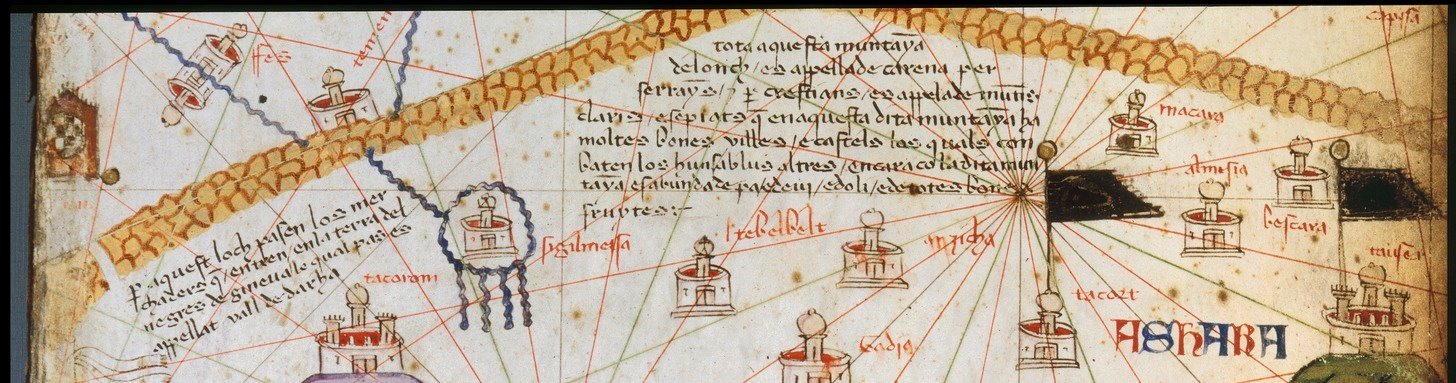 fes
tota aquesta muntaya
de lonch / es appellade carena per
serrayns / z p crestians / es appelade muntis
claris / e sepiats q en aquesta dita muntaya ha
moltes bones villes / e castels los quals com
baten los huns ab lus altres / encara co la dita mun
taya es abundade pa e de vi / e doli / e de totes bones
fruytes :~
p aquest loch pasen los mer
chaders q entren en la terra del
negres de gineva lo qual pas es
appellat vall de darha
sigilmessa
tacorom
tebelbelt
macara
almsia
bescara
tacort
ASHARA